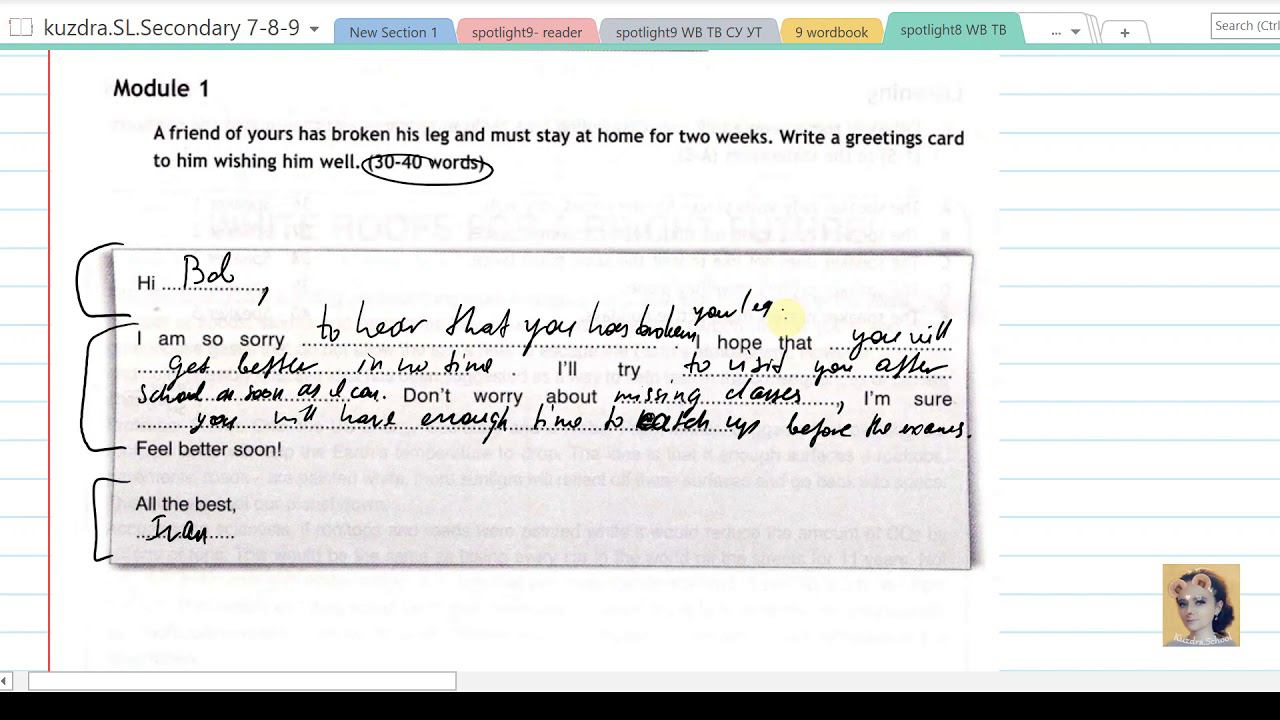 kuzdra.SL.Secondary 7-8-9
New Section 1
spotlight9- reader
spotlight9 WB TB СУ УТ
9 wordbook
spotlight8 WB TB
...
+
Search (Ct
Module 1
A friend of yours has broken his leg and must stay at home for two weeks. Write a greetings card
to him wishing him well. (30-40 words)
Hi Bob,
your leg.
I am so sorry to hear that you has broken I hope that you will
get better in no time I'll try to visit you after
school as soon as I can. Don't worry about missing classes, I'm sure
you will have enough time to catch up before the exams.
Feel better soon!
All the best,
Ivan
Kuzdra.School